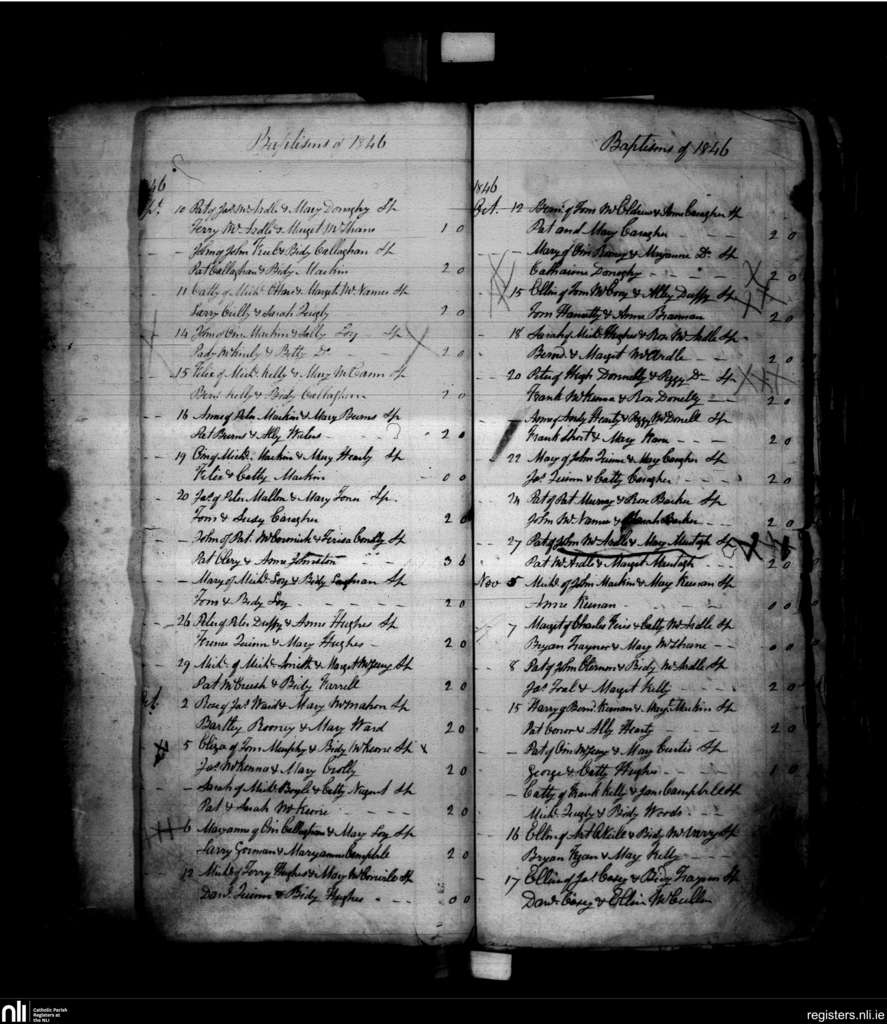 Baptisms of 1846
46
10 Pat of Jas McArdle & Mary Donaghy Sp
Terry McArdle & Marget McShane 1 0
- John of John & Bidy Callaghan Sp
Pat Callaghan & Bidy Mackin 2 0
11 Catty of Michl OHare & Marget McNamee Sp
Larry Cully & Sarah 2 0
14 John of Own Mackin & Sally Loy Sp
Pady McKinly & Betty Do 2 0
15 Felix of Michl Kelly & Mary McCann Sp
Bern. Kelly & Bidy Callaghan 2 0
16 Anne of Peter Mackin & Mary Burns Sp
Pat Burns & Ally 2 0
19 Own of Michl Mackin & Mary Hearty Sp
Felix & Catty Mackin 0 0
20 Jas of Peter Mallon & Mary Toner Sp
Tom & Caragher 2 0
- John of Pat McCormick & Teresa Sp
Pat Clery & Anne Johnston 3 6
- Mary of Michl Loy & Bidy Sp
Tom & Bidy Loy 2 0
26 Peter of Peter Duffy & Anne Hughes Sp
Quinn & Mary Hughes 2 0
29 Michl of Michl Smith & Marget Sp
Pat & Bidy Farrell 2 0
Oct.
2 Rose of Jas Ward & Mary McMahon Sp
Bartley Rooney & Mary Ward 2 0
5 Eliza of Tom Murphy & Bidy Sp
Jas McKenna & Mary Crolly 2 0
- Sarah of Michl Boyle & Catty Nugent Sp
Pat & Sarah 2 0
6 Maryanne of Own Callaghan & Mary Loy Sp
Larry Gorman & Maryanne Campbell 2 0
12 Michl of Terry Hughes & Mary Sp
Danl Quinn & Bidy Hughes 0 0
Baptisms of 1846
1846
Oct. 12 Bern. of Tom & Anne Caragher Sp
Pat and Mary Caragher 2 0
- Mary of Own Rooney & Maryanne Do Sp
Catharine Donaghy 2 0
15 Ellin of Tom McCoy & Ally Duffy Sp
Tom Hanratty & Anne Brannan 2 0
18 Sarah of Michl Hughes & Rose McArdle Sp
Bernd & Marget McArdle 2 0
20 Peter of Hugh Donnelly & Peggy Do Sp
Frank McKenna & Rose Donelly 2 0
- Anne of Andy Hearty & Peggy McDonell Sp
Frank Short & Mary 2 0
22 Mary of John Quinn & Mary Caragher Sp
Jas Quinn & Catty Caragher 2 0
24 Pat of Pat Murray & Rose Barker Sp
John McNamee & Sarah Barker 2 0
27 Pat of John McArdle & Mary Murtagh Sp
Pat McArdle & Marget Murtagh 2 0
Nov 5 Michl of John Mackin & Mary Keenan Sp
Anne Keenan 0 0
7 Marget of Charles & Catty McArdle Sp
Bryan Traynor & Mary McShane 0 0
8 Pat of John & Bidy McArdle Sp
Jas Toal & Marget Kelly 2 0
15 Harry of Bernd Keenan & Margt Mackin Sp
Pat Conor & Ally Hearty 2 0
- Pat of Own & Mary Curtis Sp
George & Catty Hughes 1 0
- Catty of Frank Kelly & Jane Campbell Sp
Michl & Bidy Woods
16 Ellin of Art & Bidy Sp
Bryan & Mary Kelly
17 Ellin of Jas Casey & Bidy Traynor Sp
Danl Casey & Ellin McCullen
nli
Catholic Parish
Registers at
the NLI
registers.nli.ie